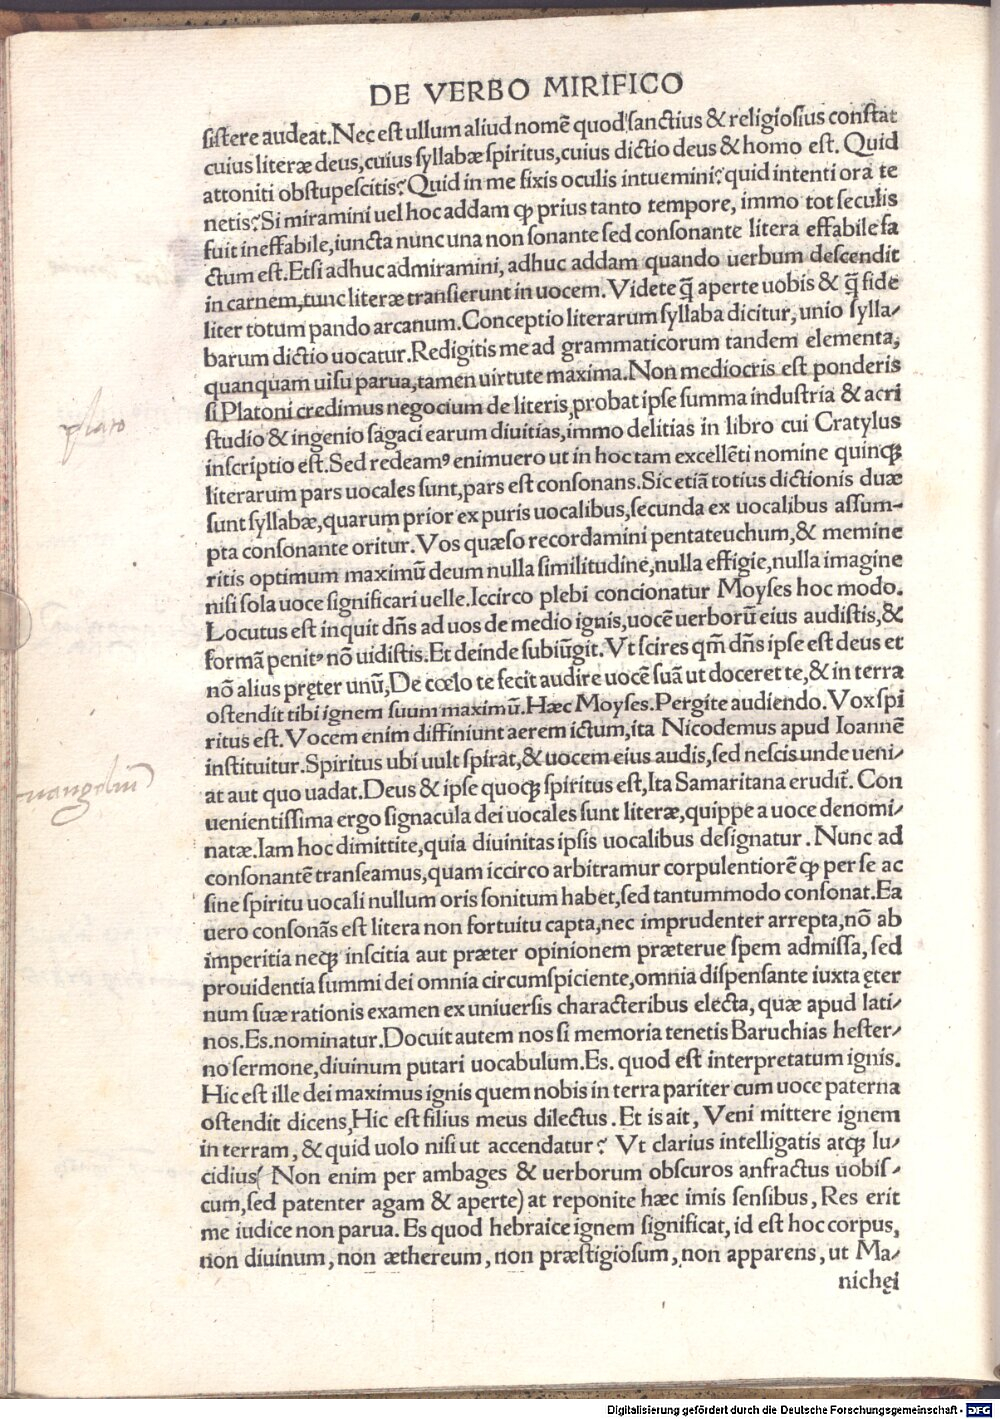 DE VERBO MIRIFICO
sistere audeat. Nec est ullum aliud nomē quod sanctius & religiosius constat
cuius literæ deus, cuius syllabæ spiritus, cuius dictio deus & homo est. Quid
attoniti obstupescitis? Quid in me fixis oculis intuemini? quid intenti ora te
netis? Si miramini uel hoc addam ꝙ prius tanto tempore, immo tot seculis
fuit ineffabile, iuncta nunc una non sonante sed consonante litera effabile fa
ctum est. Etsi adhuc admiramini, adhuc addam quando uerbum descendit
in carnem, tunc literæ transierunt in uocem. Videte q̄ aperte uobis & q̄ fide
liter totum pando arcanum. Conceptio literarum syllaba dicitur, unio sylla/
barum dictio uocatur. Redigitis me ad grammaticorum tandem elementa,
quanquam uisu parua, tamen uirtute maxima. Non mediocris est ponderis
si Platoni credimus negocium de literis, probat ipse summa industria & acri
studio & ingenio sagaci earum diuitias, immo delitias in libro cui Cratylus
inscriptio est. Sed redeamꝰ enimuero ut in hoc tam excellēti nomine quinqꝫ
literarum pars uocales sunt, pars est consonans. Sic etiā totius dictionis duæ
sunt syllabæ, quarum prior ex puris uocalibus, secunda ex uocalibus assum-
pta consonante oritur. Vos quæso recordamini pentateuchum, & memine
ritis optimum maximū deum nulla similitudine, nulla effigie, nulla imagine
nisi sola uoce significari uelle. Iccirco plebi concionatur Moyses hoc modo.
Locutus est inquit dn̄s ad uos de medio ignis, uocē uerborū eius audistis, &
formā penitꝰ nō uidistis. Et deinde subiūgit. Vt scires qm̄ dn̄s ipse est deus et
nō alius pręter unū, De cœlo te fecit audire uocē suā ut doceret te, & in terra
ostendit tibi ignem suum maximū. Hæc Moyses. Pergite audiendo. Vox spi
ritus est. Vocem enim diffiniunt aerem ictum, ita Nicodemus apud Ioannē
instituitur. Spiritus ubi uult spirat, & uocem eius audis, sed nescis unde ueni/
at aut quo uadat. Deus & ipse quoqꝫ spiritus est, Ita Samaritana erudit̄. Con
uenientissima ergo signacula dei uocales sunt literæ, quippe a uoce denomi/
natæ. Iam hoc dimittite, quia diuinitas ipsis uocalibus designatur. Nunc ad
consonantē transeamus, quam iccirco arbitramur corpulentiorē ꝙ per se ac
sine spiritu uocali nullum oris sonitum habet, sed tantummodo consonat. Ea
uero consonās est litera non fortuitu capta, nec imprudenter arrepta, nō ab
imperitia neqꝫ inscitia aut præter opinionem præterue spem admissa, sed
prouidentia summi dei omnia circumspiciente, omnia dispensante iuxta ęter
num suæ rationis examen ex uniuersis characteribus electa, quæ apud lati/
nos. Es. nominatur. Docuit autem nos si memoria tenetis Baruchias hester/
no sermone, diuinum putari uocabulum. Es. quod est interpretatum ignis.
Hic est ille dei maximus ignis quem nobis in terra pariter cum uoce paterna
ostendit dicens, Hic est filius meus dilectus. Et is ait, Veni mittere ignem
in terram, & quid uolo nisi ut accendatur? Vt clarius intelligatis atqꝫ lu/
cidius( Non enim per ambages & uerborum obscuros anfractus uobis/
cum, sed patenter agam & aperte) at reponite hæc imis sensibus, Res erit
me iudice non parua. Es quod hebraice ignem significat, id est hoc corpus,
non diuinum, non æthereum, non præstigiosum, non apparens, ut Ma/
nichęi
plato
euangeliū
Digitalisierung gefördert durch die Deutsche Forschungsgemeinschaft - DFG